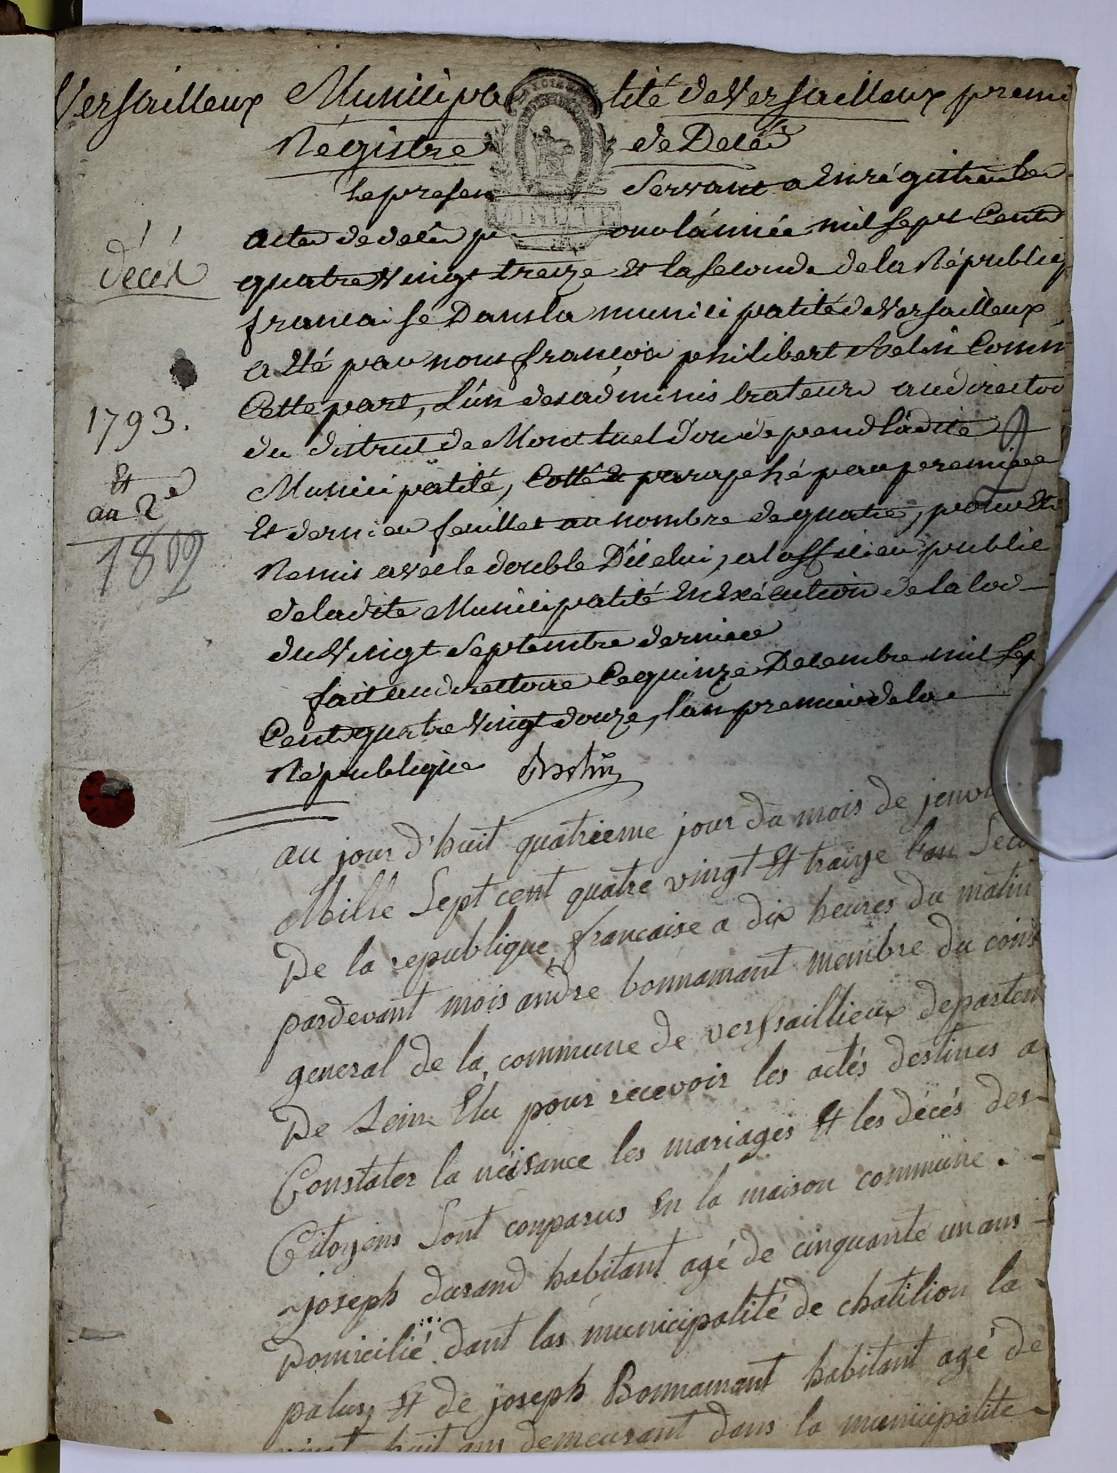 Versailleux Municipalité de Versailleux premi
Régistre de Décéd
Le presen Servant a Enrégistrer les
actes de décèd p our l'année mil sept Cent
décéd
quatre Vingt treize Et la seconde de la Républiq
francaise Dans la municipalité de Versailleux
a Eté par nous françois philibert
1793.
Cette part, L'un des administrateurs au directoi
du district de Montluel d'ou depend ladite
Et
Municipalité, Cotté & paraphé par premiere
an 2e
Et dernier feuillet au nombre de quatre, pour Etre
1802
Remis avec le double D'icelui, a l'officier public
de ladite Municipalité En Exécution de la loi
du Vingt Septembre dernier
fait au directoire Ce quinze Décembre mil Sep
Cent quatre Vingt douze, l'an premier de la
République
au jour d'huit quatrieme jour du mois de jenvi
Mille Sept cent quatre vingt Et traize l'an Seco
De la republique francaise a dix heures du matin
pardevant mois andre bonnamant membre du cons
general de la commune de versaillieux departem
De Lein Elu pour recevoir les actés destines a
Constater la néisance les mariages Et les décés des
Citoyens Sont conparus En la maison commune.
joseph durand habitant agé de cinquante un ans
Domicilié dant las municipalité de chatilion la
palus, Et de joseph Bonnamant habitant agé de
vingt huit ans demeurant dans la municipalite